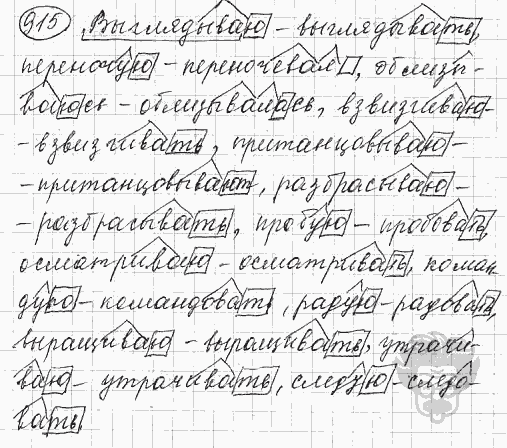 915 Выглядываю - выглядывать,
переночую - переночевал, облизы-
ваюсь - облизывалась, взвизгиваю -
- взвизгивать, пританцовываю -
- пританцовывают, разбрасываю -
- разбрасывать, пробую - пробовать,
осматриваю - осматривать, коман-
дую - командовать, радую - радовать,
выращиваю - выращивать, утрачи-
ваю - утрачивать, следую - следо-
вать